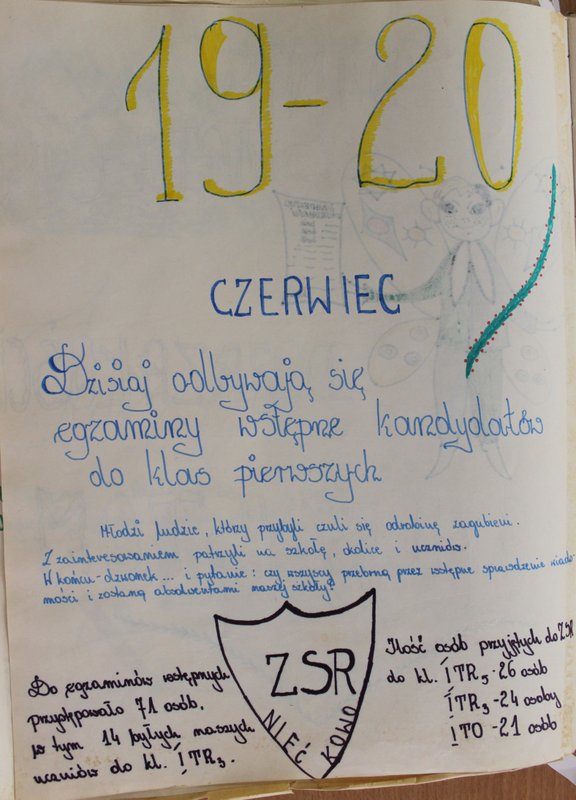 19-20
CZERWIEC
Dzisiaj odbywają się
egzaminy wstępne kandydatów
do klas pierwszych
Młodzi ludzie, którzy przybyli czuli się odrobinę zagubieni.
Z zainteresowaniem patrzyli na szkołę, okolice i uczniów.
W końcu - dzwonek... i pytanie: czy wszyscy przebrną przez wstępne sprawdzenie wiado-
mości i zostaną absolwentami naszej szkoły?
Do egzaminów wstępnych
przystępowało 71 osób,
w tym 14 byłych naszych
uczniów do kl. I TR3.
ZSR
NIEĆKOWO
Ilość osób przyjętych do ZSR
do kl. I TR5 - 26 osób
I TR3 - 24 osoby
I TO - 21 osób